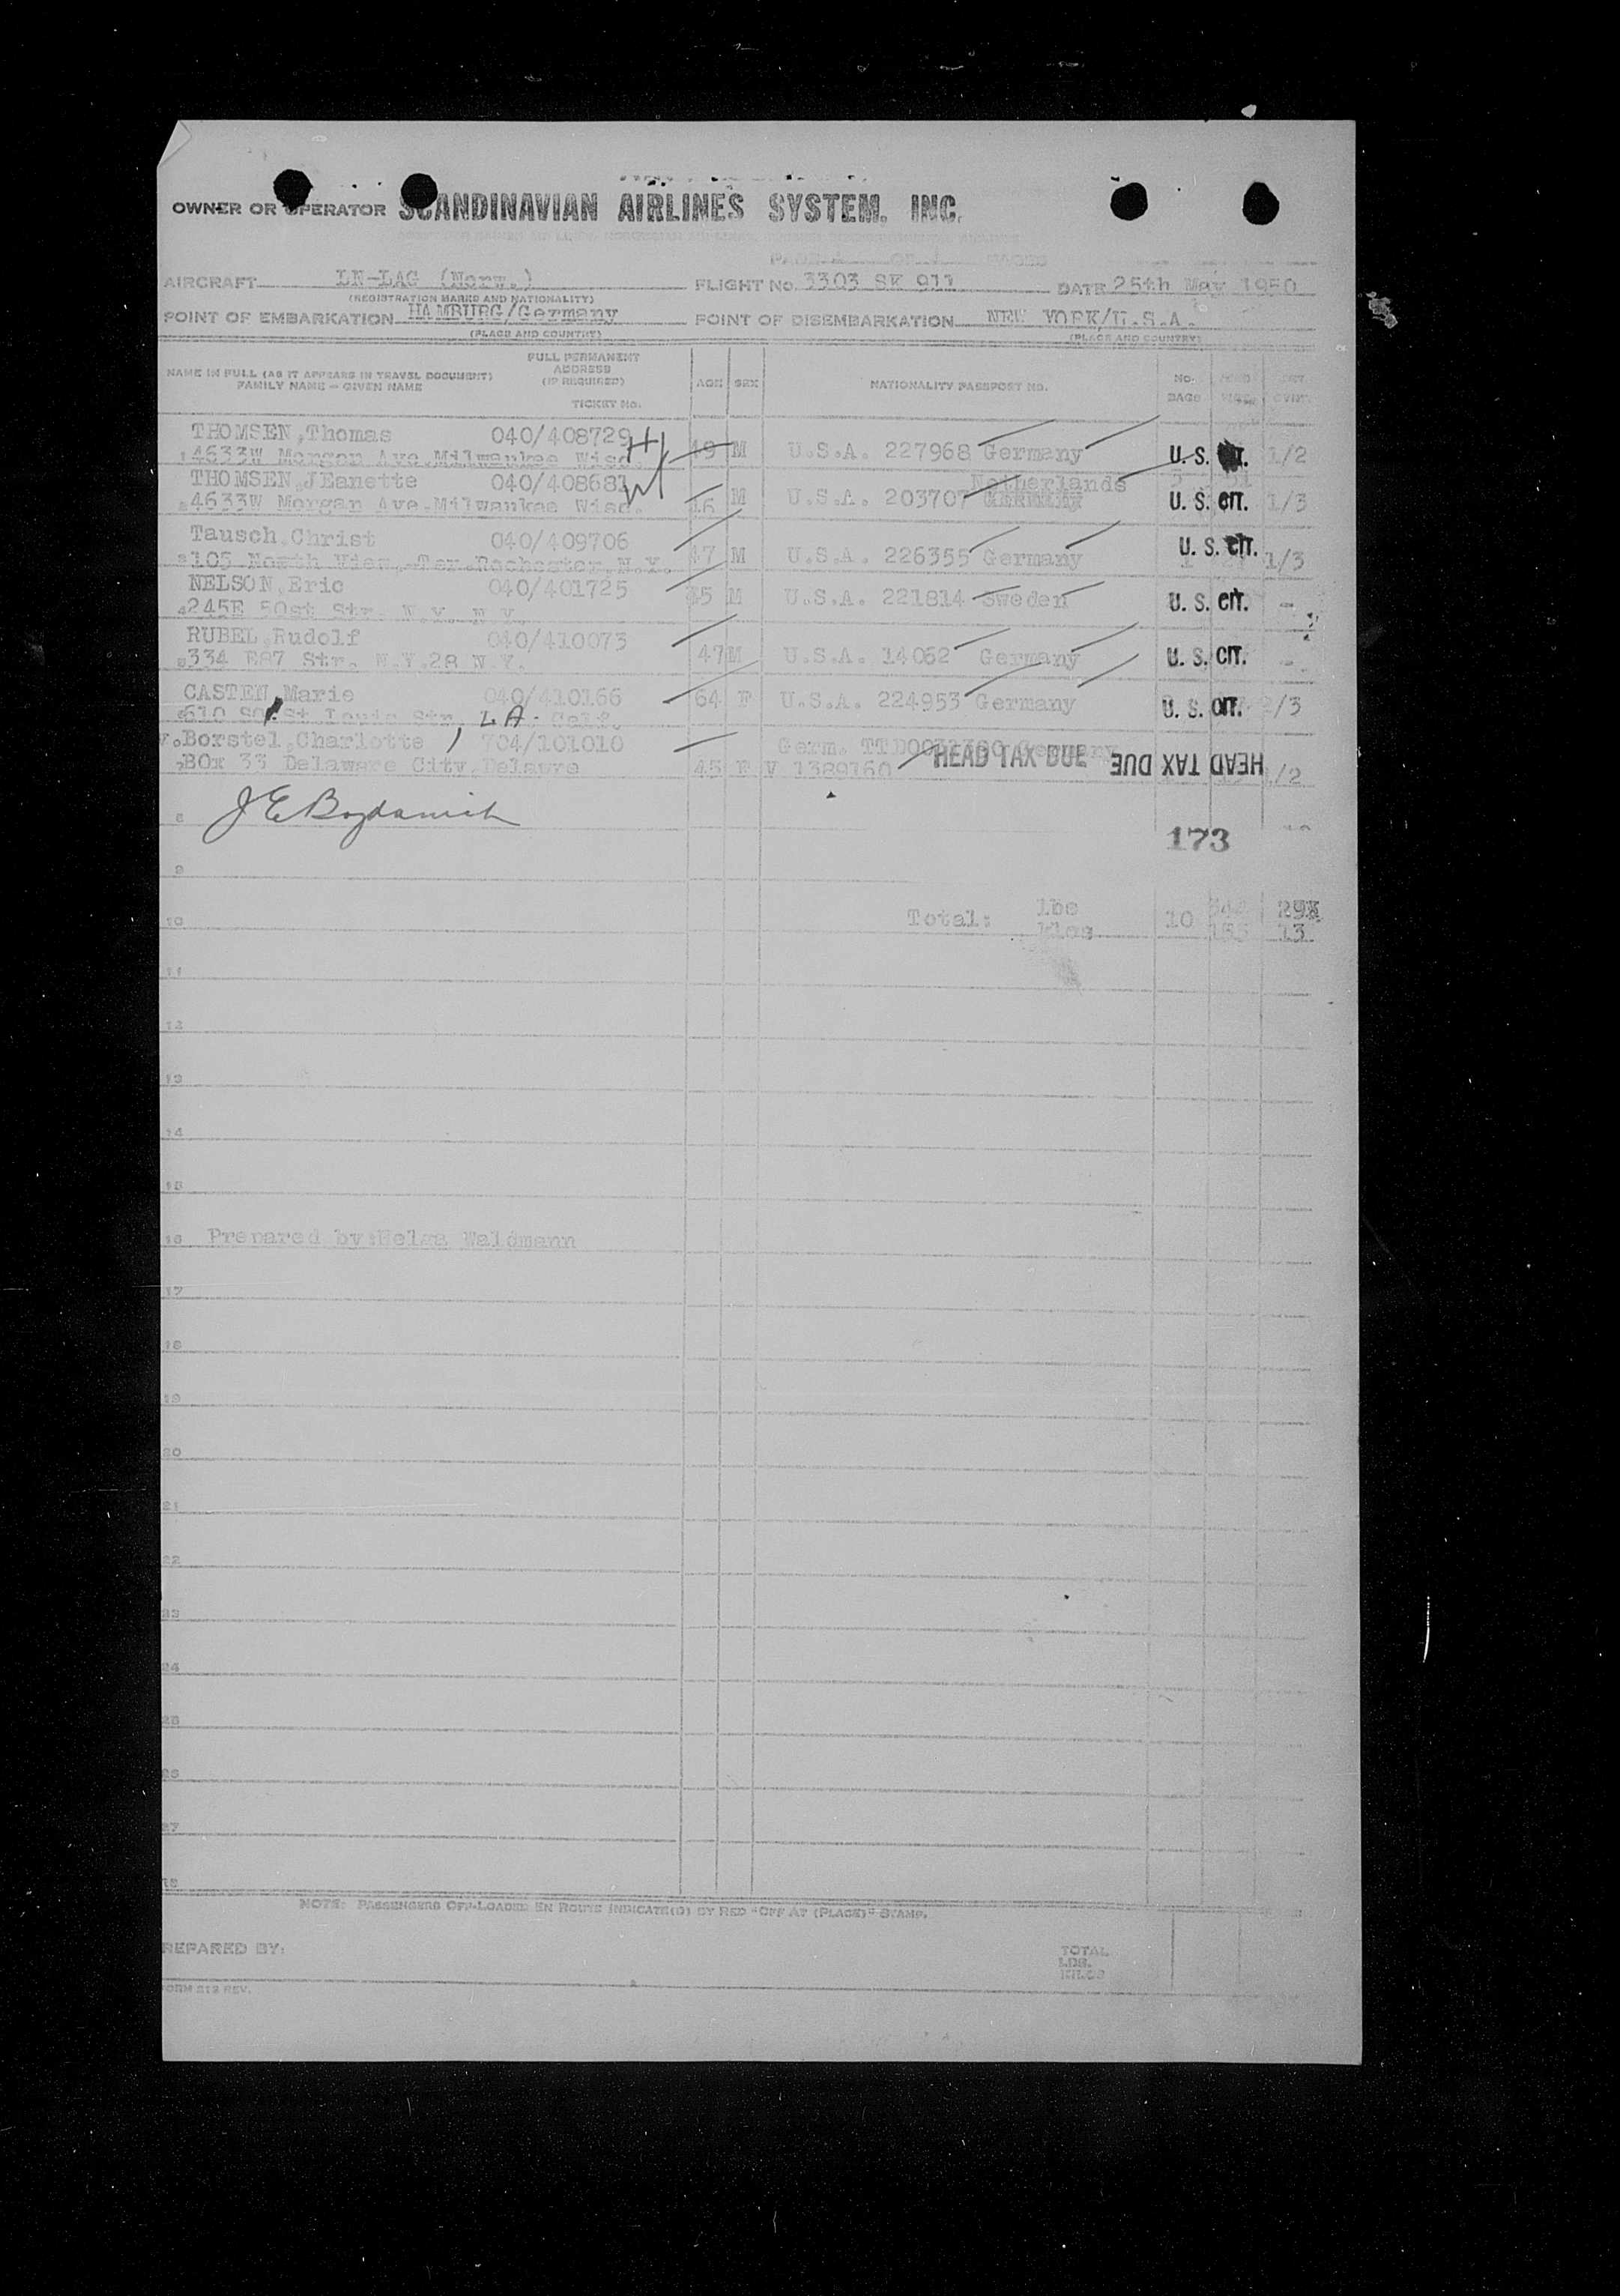 OWNER OR OPERATOR SCANDINAVIAN AIRLINES SYSTEM, INC.
AIRCRAFT LN-LAG (Norw.) FLIGHT No. 3303 SK 911 DATE 25th May 1950
(REGISTRATION MARKS AND NATIONALITY)
POINT OF EMBARKATION HAMBURG/Germany POINT OF DISEMBARKATION NEW YORK/U.S.A.
(PLACE AND COUNTRY) (PLACE AND COUNTRY)
NAME IN FULL (AS IT APPEARS IN TRAVEL DOCUMENT)
FAMILY NAME – GIVEN NAME
FULL PERMANENT
ADDRESS
(IF REQUIRED)
TICKET No.
AGE SEX NATIONALITY PASSPORT NO. NO.
BAGS
THOMSEN,Thomas 040/408729 H
1 4633W Morgan Ave.Milwaukee Wisc. 49 M U.S.A. 227968 Germany U.S. CIT. 1/2
THOMSEN,JEanette 040/408681 W Netherlands
2 4633W Morgan Ave.Milwaukee Wisc. 46 M U.S.A. 203707 Germany U.S. CIT. 1/3
Tausch,Christ 040/409706
3 105 North View, Tex.Rochester,N.Y. 47 M U.S.A. 226355 Germany U.S. CIT. 1/3
NELSON,Eric 040/401725
4 245E 50st Str. N.Y. N.Y. 45 M U.S.A. 221814 Sweden U.S. CIT. -
RUBEL,Rudolf 040/410073
5 334 E87 Str. N.Y.28 N.Y. 47 M U.S.A. 14062 Germany U.S. CIT. -
CASTEN,Marie 040/410166 64 F U.S.A. 224953 Germany U.S. CIT. 2/3
6 610 So. St.Louis Str, L.A. Calf.
v.Borstel,Charlotte 704/101010 Germ. Germany
7 BOx 33 Delaware City,Delawre 45 F V 1389160 HEAD TAX DUE HEAD TAX DUE 1/2
8 J E Bogdanich
173
9
10 Total: lbs 10 29
klos 155 13
11
12
13
14
15
16 Prepared by:Helga Waldmann
17
18
19
20
21
22
23
24
25
26
27
NOTE: PASSENGERS OFF-LOADED EN ROUTE INDICATE(D) BY RED "OFF AT (PLACE)" STAMP.
REPARED BY: TOTAL
LBS.
KILOS
ORM 212 REV.